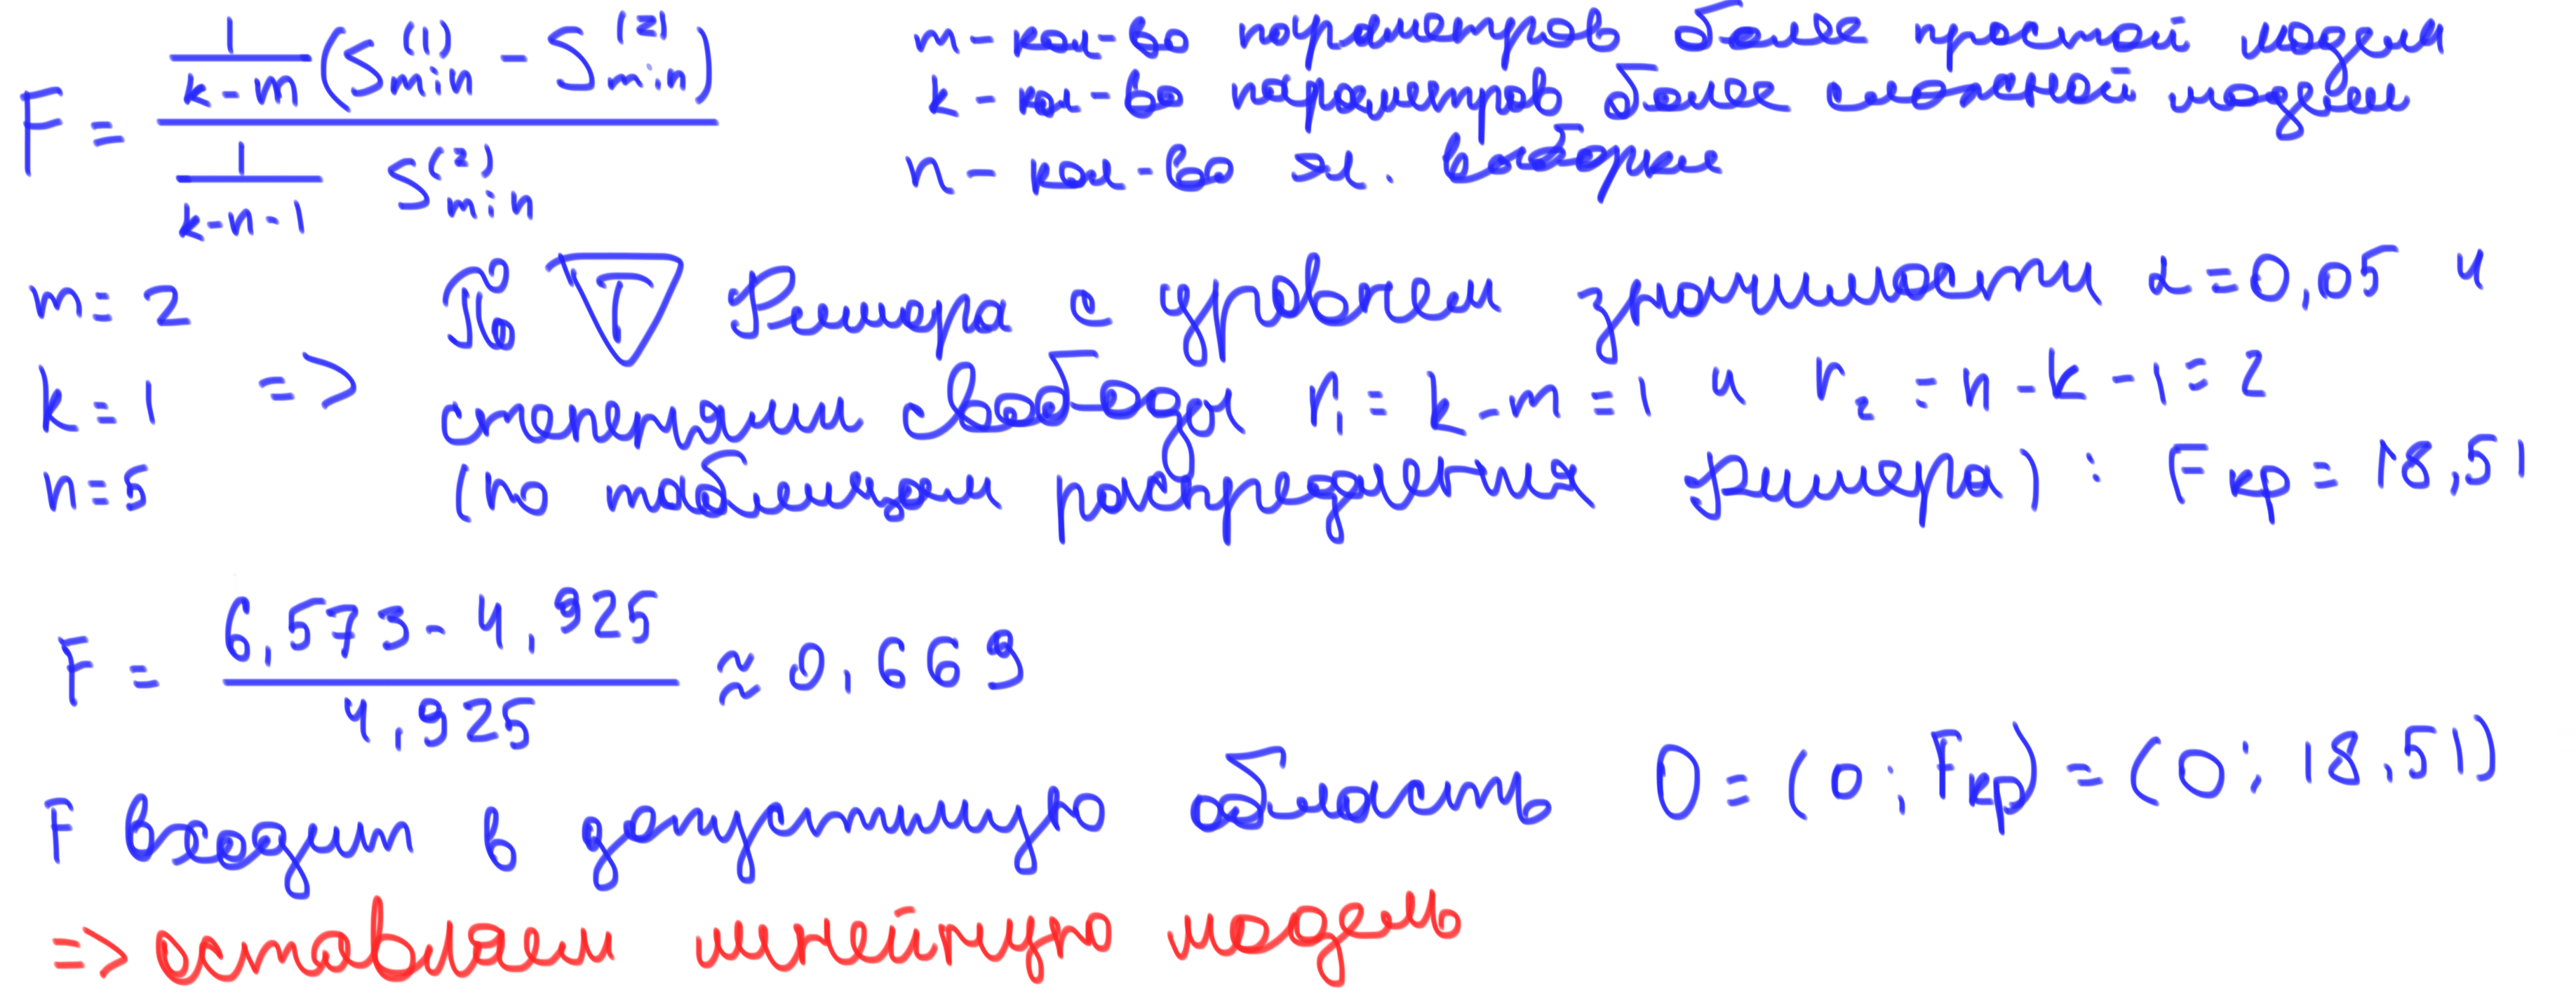 F = \frac{\frac{1}{k-m}(S_{min}^{(1)} - S_{min}^{(2)})}{\frac{1}{k-n-1} S_{min}^{(2)}}
m - кол-во параметров более простой модели
k - кол-во параметров более сложной модели
n - кол-во эл. выборки
m = 2
k = 1 =>
n = 5
По ▽T Фишера с уровнем значимости α = 0,05 и
степенями свободы r₁ = k - m = 1 и r₂ = n - k - 1 = 2
(по таблицам распределения Фишера) : Fкр = 18,51
F = \frac{6,573 - 4,925}{4,925} ≈ 0,669
F входит в допустимую область O = (0 ; Fкр) = (0 ; 18,51)
=> оставляем линейную модель